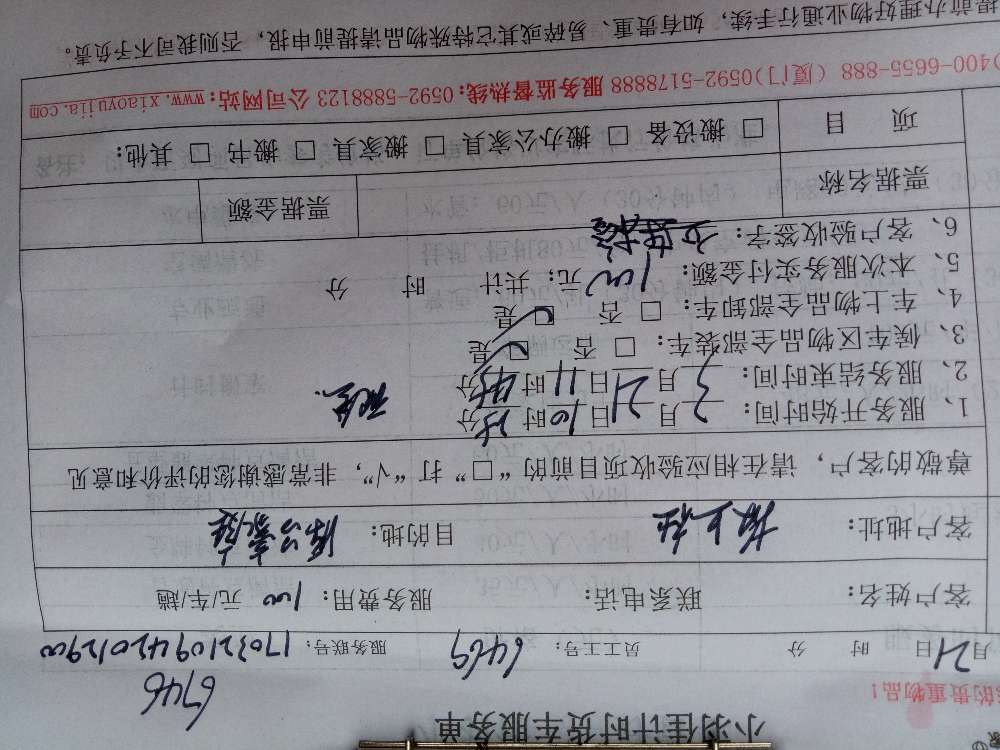 小羽佳计时货车服务单
的贵重物品！
6746
月21日 时 分 员工工号：6469 服务联号：17032109422012900
客户姓名： 联系电话： 服务费用：100 元/车/趟
客户地址： 目的地：
尊敬的客户，请在相应验收项目前的“□”打“√”，非常感谢您的评价和意见
1、服务开始时间：3月21日10时25分
2、服务结束时间：3月21日11时45分
3、候车区物品全部装车：□ 否 □ 是
4、车上物品全部卸车：□ 否 □ 是
5、本次服务实付金额：100元；共计 时 分
6、客户验收签字：
票据名称 票据金额
项 目 □ 搬设备 □ 搬办公家具 □ 搬家具 □ 搬书 □ 其他：
)400-6655-888 (厦门)0592-5178888 服务监督热线：0592-5888123 公司网站：www.xiaoyujia.com
提前办理好物业通行手续，如有贵重、易碎或其它特殊物品请提前申报，否则我司不予负责。